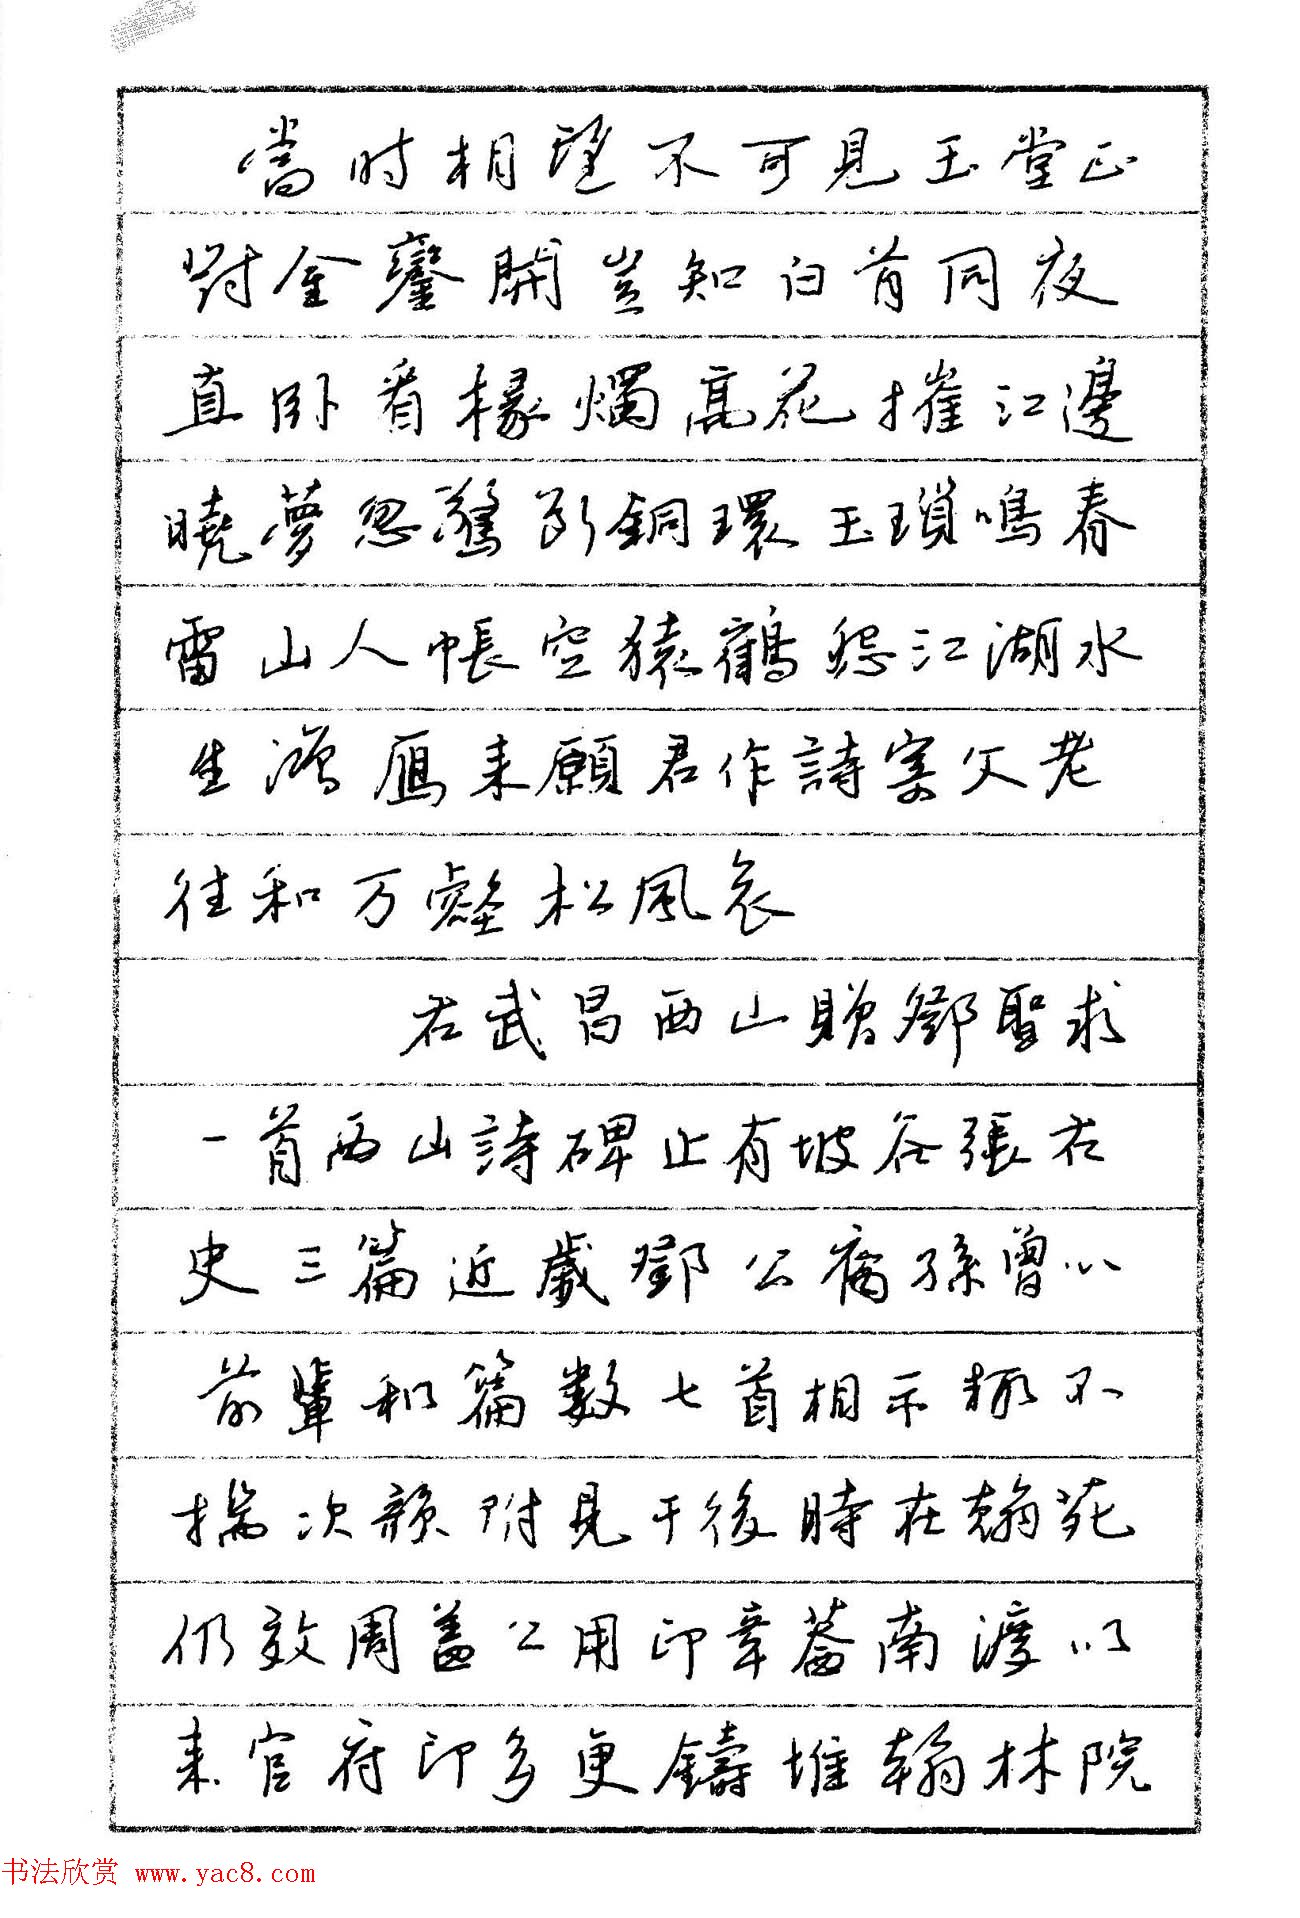 當时相望不可見玉堂正
對金鑾開豈知白首同夜
直卧看椽燭高花摧江邊
曉夢忽驚斷銅環玉瑣鳴春
雷山人帳空猿鶴怨江湖水
生鴻雁来願君作詩寄父老
往和万壑松風哀
右武昌西山贈鄧聖求
一首西山詩碑止有坡谷張右
史三篇近歲鄧公裔孫曾以
前輩和篇数七首相示輒不
揣次韻附見于後時在翰苑
仍效周益公用印章蓋南渡以
来官府印多更鑄惟翰林院
书法欣赏 www.yac8.com